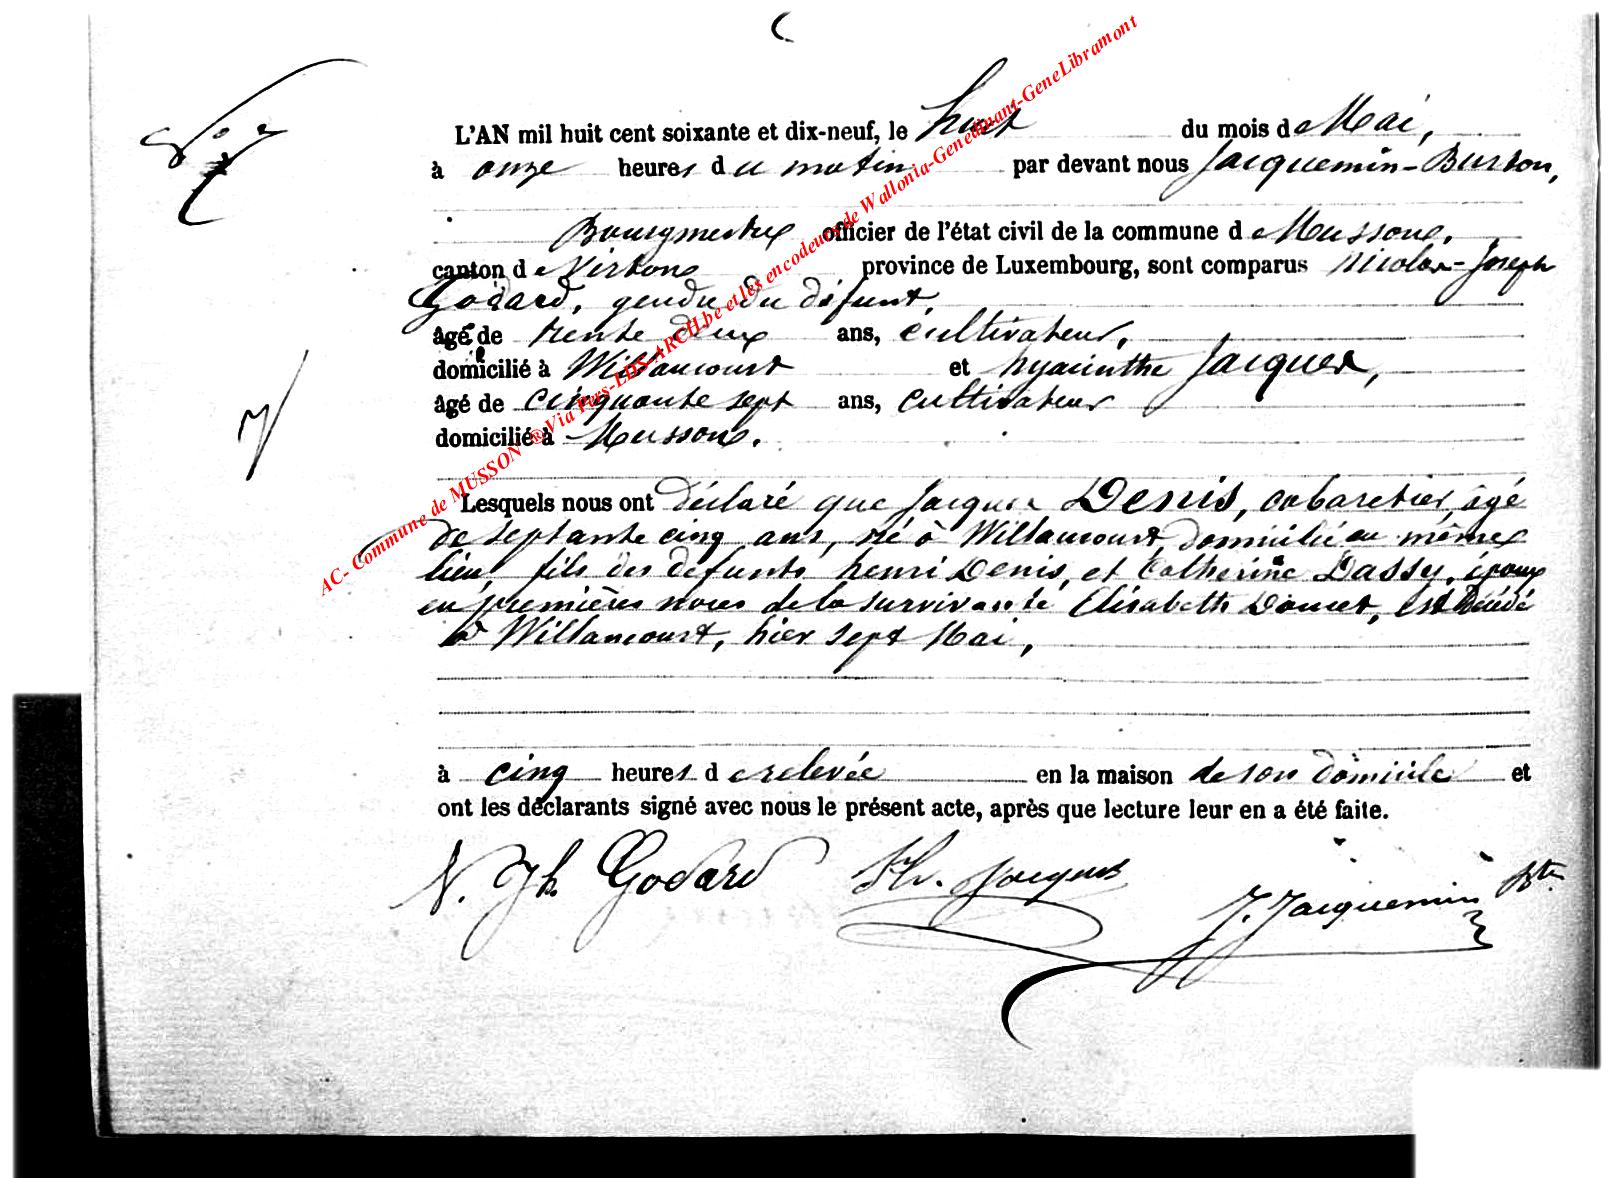 N° 7
L'AN mil huit cent soixante et dix-neuf, le huit du mois de Mai,
à onze heures du matin par devant nous Jacquemin-Burton,
Bourgmestre officier de l'état civil de la commune de Musson,
canton de Virton province de Luxembourg, sont comparus Nicolas-Joseph
Godard, gendre du défunt,
âgé de trente deux ans, cultivateur,
domicilié à Willancourt et hyacinthe Jacques,
âgé de cinquante sept ans, cultivateur
domicilié à Musson.
Lesquels nous ont déclaré que Jacques Denis, cabaretier, âgé
de septante cinq ans, né à Willancourt, domicilié au même
lieu, fils des défunts henri Denis, et Catherine Dassy, époux
en premières noces de la survivante Elisabeth Doucet, est décédé
à Willancourt, hier sept Mai,
à cinq heures de relevée en la maison de son domicile et
ont les déclarants signé avec nous le présent acte, après que lecture leur en a été faite.
N. Jh. Godard Hte. Jacques J. Jacquemin Bton
AC- Commune de MUSSON ®Via Pers-LDS-ARCH.be et les encodeurs de Wallonia-Genedinant-GeneLibramont